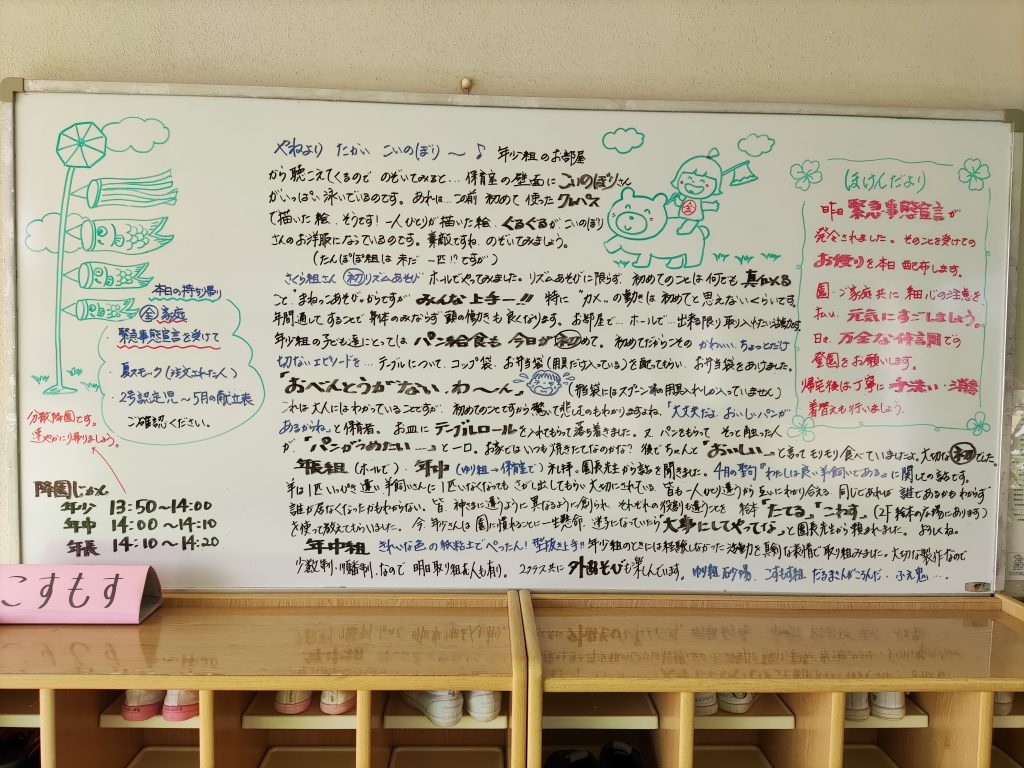 やねより たかい こいのぼり 〜 ♪ 年少組のお部屋
から聴こえてくるので のぞいてみると… 保育室の壁面に こいのぼりさん
がいっぱい泳いでいるのです。あれは… この前 初めて 使った クレパス
で描いた絵、そうです！一人ひとりが描いた絵、ぐるぐるが こいのぼり
さんのお洋服になっているのです。素敵ですね。のぞいてみましょう。
（たんぽぽ組は まだ 一匹!?ですが）
さくら組さん 初リズムあそび ホールでやってみました。リズムあそびに限らず 初めてのことは何でも 真似る
こと、まねっこあそびからですが みんな上手ー!! 特に "カメ"の動きは 初めてと思えないくらいです。
年間通してすることで 身体のみならず 頭の働きも良くなります。お部屋で… ホールで… 出来る限り取り入れたい活動です。
年少組の子ども達にとっては パン給食も 今日が初めて。初めてだからこその かわいい、ちょっとだけ
切ないエピソードを… テーブルについて、コップ袋、お弁当袋（用具だけ入っている）を配ってもらい、お弁当袋をあけました。
「おべんとうがない、わ〜ん」（指袋にはスプーン等の用具入れしか入っていません）
これは大人にはわかっていることですが、初めてのことですから驚いて悲しむのもわかりますよね。「大丈夫だよ。おいしいパンが
あるからね」と保育者。お皿に テーブルロールを入れてもらって落ち着きました。又、パンをもって そっと触った人
が、「パンがつめたい…」と一口。お家ではいつも焼きたてなのかな？後でちゃんと「おいしい」と言って モリモリ食べていましたよ。大切な初でした。
年長組（ホールで）・年中（ゆり組→保育室で）礼拝。園長先生から話を聞きました。4月の聖句『わたしは良い羊飼いである』に関しての話です。
羊は1匹いっぴき違い 羊飼いさんに 1匹いなくなっても さがし出してもらい 大切にされている。皆も一人ひとり違うから 互いにわかり合える。同じであれば 誰であるかもわからず
誰が居なくなったかもわからない。皆、神さまに違うように 異なるように創られ、それぞれの役割も違うことを 絵本「たてる」「こわす」（2F絵本の広場にあります）
を使って教えてもらいました。今、年少さんは 園に慣れることに一生懸命、迷子になっていたら「大事にしてやってな」と園長先生から頼まれました。よろしくね。
年中組 きれいな色の紙粘土でぺったん！型抜き上手!! 年少組のときには経験しなかった活動を真剣な表情で取り組みました。大切な製作なので
少数制・順番制、なので 明日取り組む人も有り。2クラス共に 外あそびも楽しんでいます。ゆり組 砂場、こすもす組 だるまさんがころんだ・ふえ鬼…。
全
ほけんだより
昨日 緊急事態宣言が
発令されました。そのことを受けての
お便りを本日 配布します。
園・ご家庭共に 細心の注意を
払い、元気にすごしましょう。
日々、万全な体調での
登園をお願いします。
帰宅後は丁寧に手洗い・消毒
着替えも行いましょう。
本日の持ち帰り
全家庭
緊急事態宣言を受けて
・夏スモック（注文された人）
・2号認定児〜5月の献立表
ご確認ください。
分散降園です。
速やかに帰りましょう。
降園じかん
年少 13:50〜14:00
年中 14:00〜14:10
年長 14:10〜14:20
こすもす